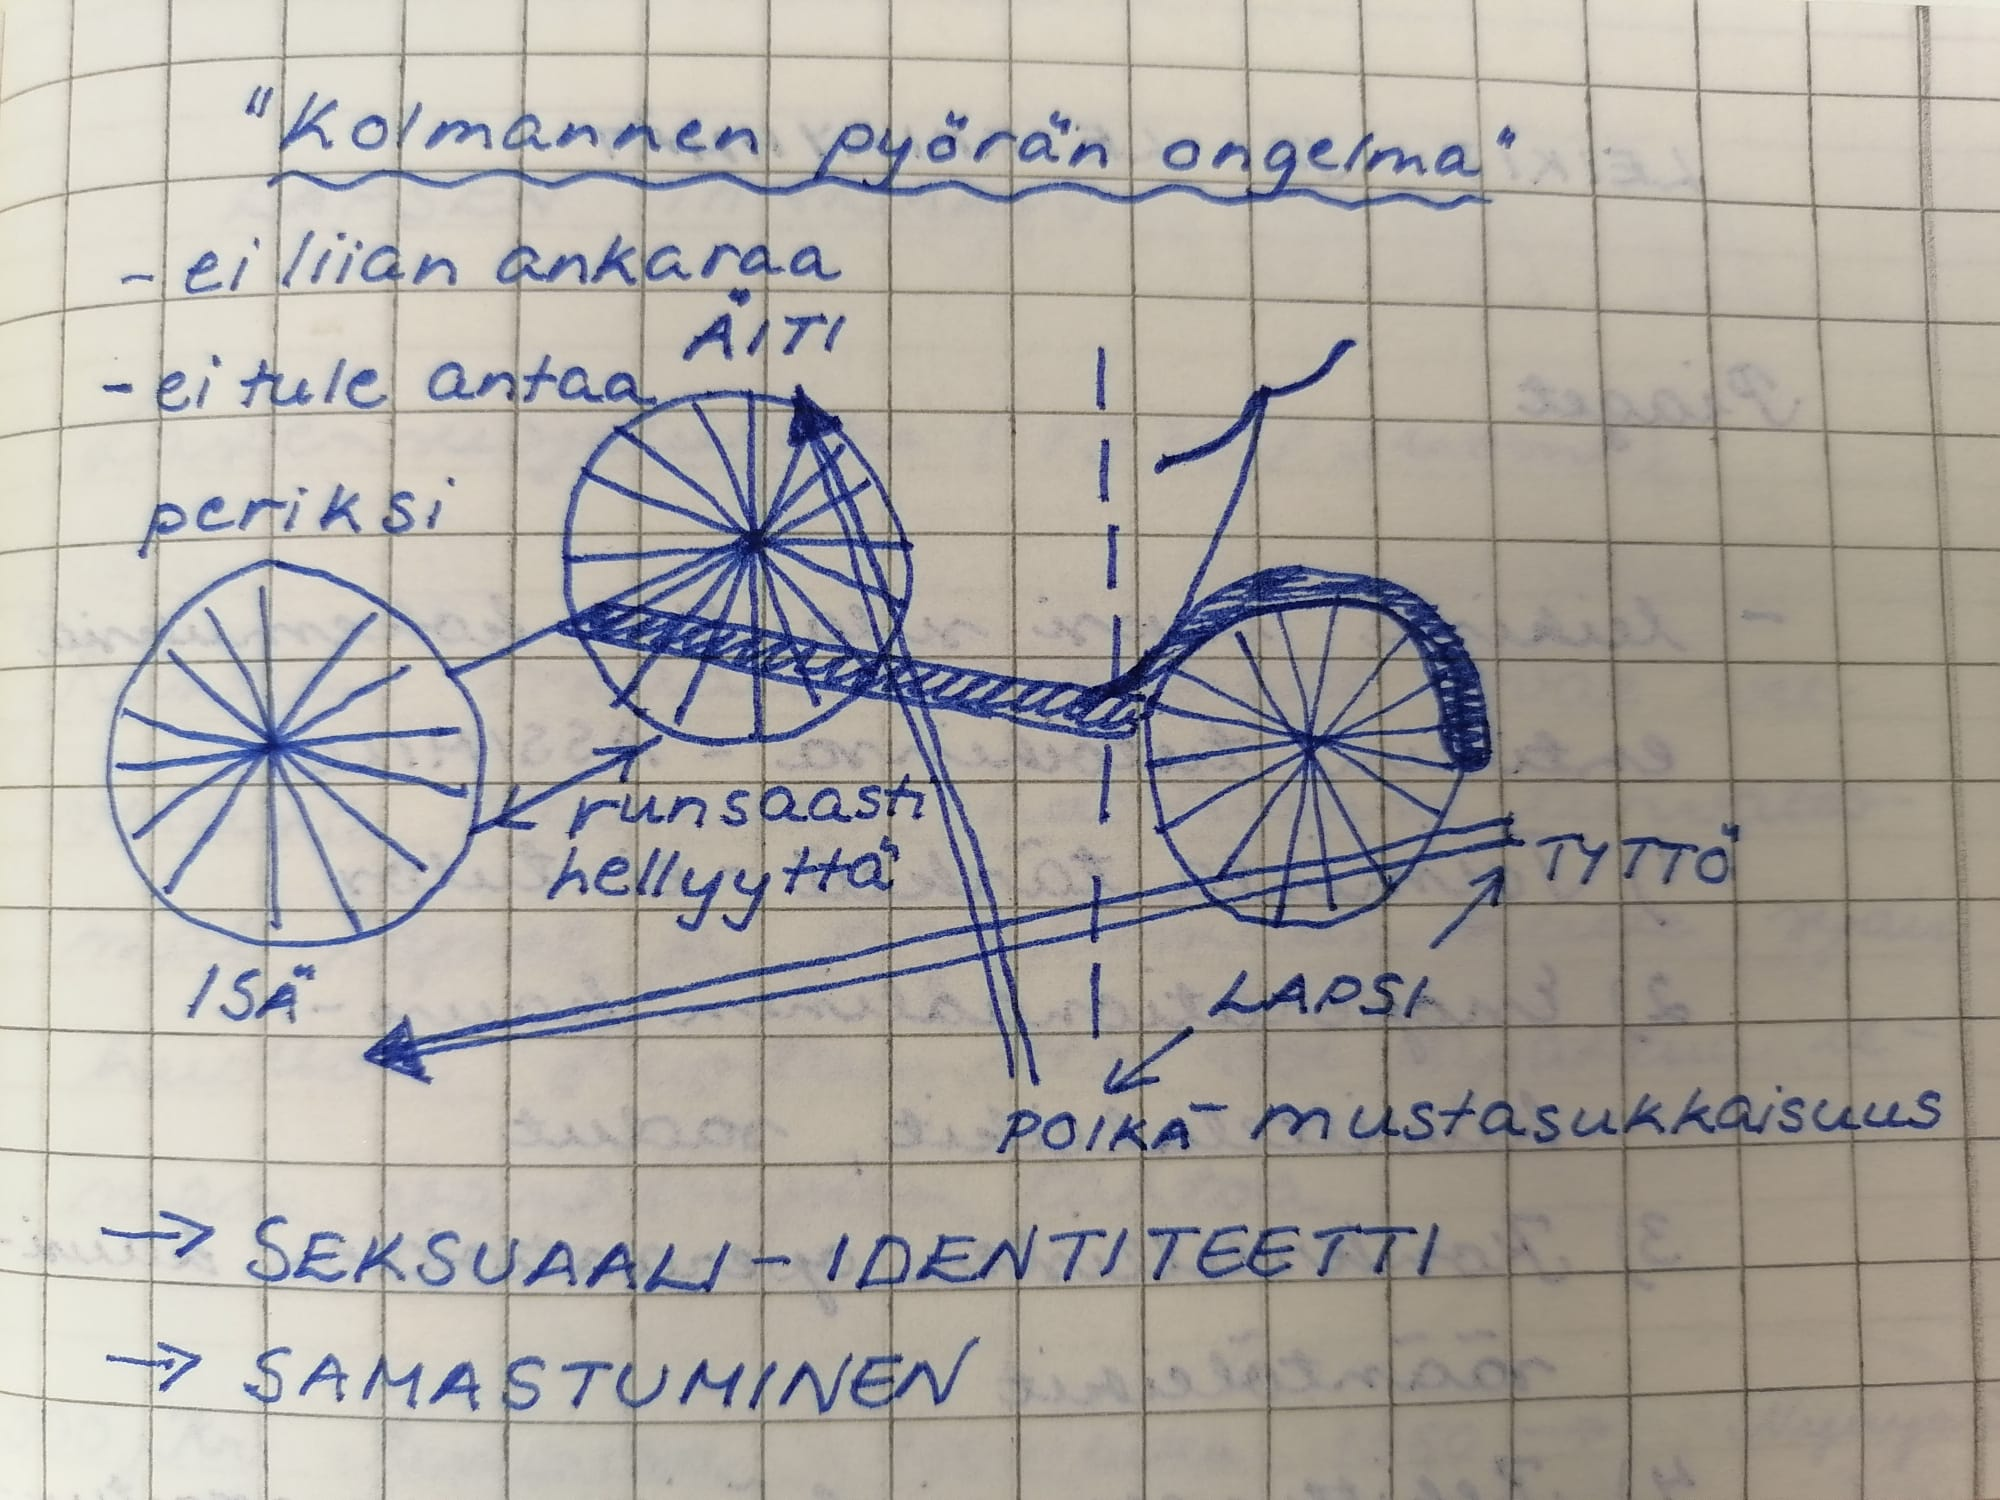 "Kolmannen pyörän ongelma"
- ei liian ankaraa
ÄITI
- ei tule antaa
periksi
runsaasti
hellyyttä
TYTTÖ
ISÄ
LAPSI
POIKA - mustasukkaisuus
→ SEKSUAALI-IDENTITEETTI
→ SAMASTUMINEN